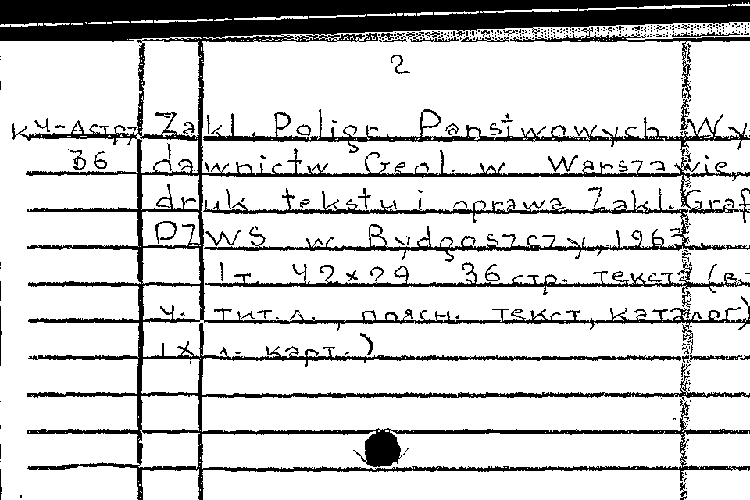 2
КЧ-Астр Zakł. Poligr. Państwowych Wy
36 dawnictw Geol. w Warszawie,
druk tekstu i oprawa Zakł. Graf
PZWS w Bydgoszczy, 1963.
1 т. 42×29 36 стр. текста (в т.
ч. тит. л., поясн. текст, каталог)
IX л. карт.)